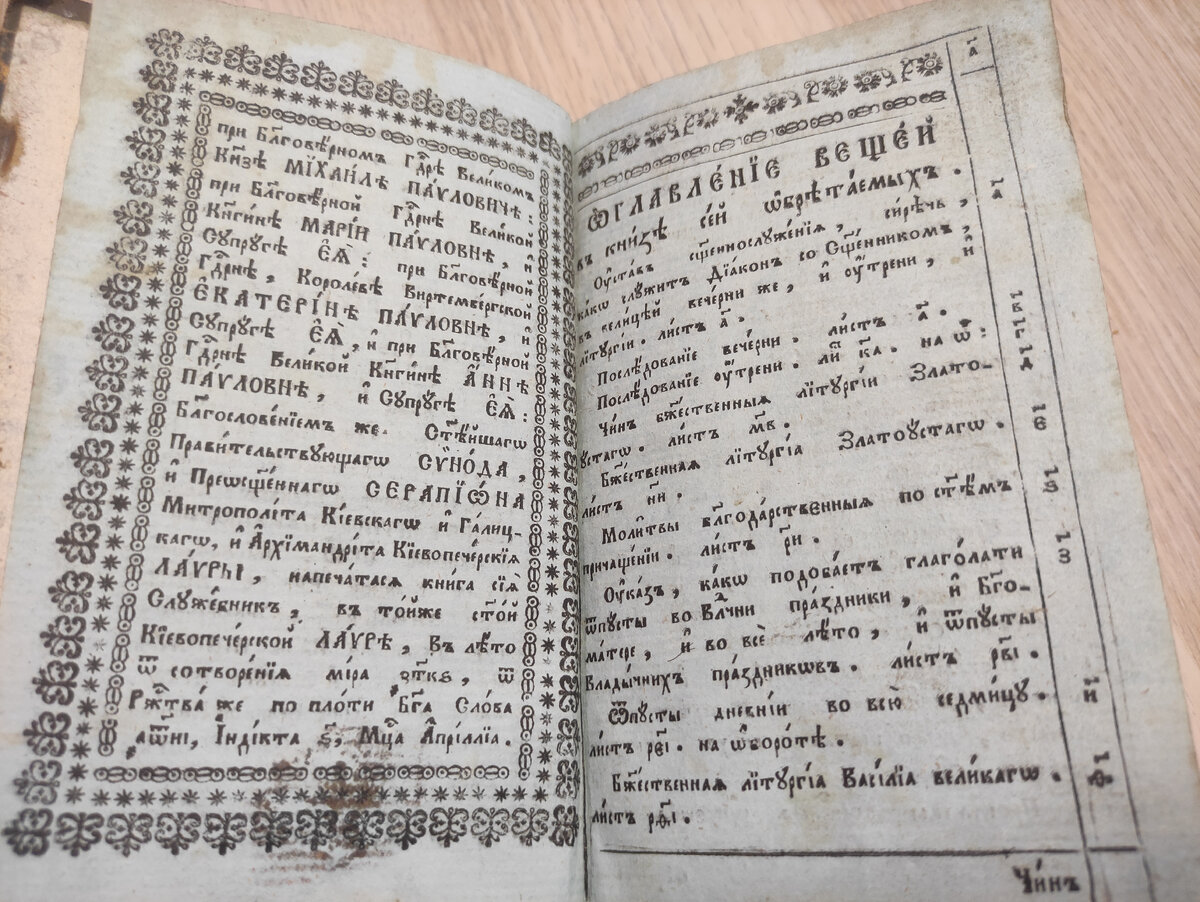 при Бл҃говѣ́рномъ Гдⷭ҇рѣ Вели́комъ
Кн҃зѣ МІХАИ́ЛѢ ПА́УЛОВИЧѢ:
при Бл҃говѣ́рной Гдⷭ҇рнѣ Вели́кой
Кн҃ги́нѣ МАРІ́И ПА́УЛОВНѢ, и҆
Супру́гѣ Є҆Ѧ̀: при Бл҃говѣ́рной
Гдⷭ҇рнѣ, Короле́вѣ Виртембе́ргской
Є҆КАТЕРІ́НѢ ПА́УЛОВНѢ, и҆
Супру́гѣ Є҆Ѧ̀, и҆ при Бл҃говѣ́рной
Гдⷭ҇рнѣ Вели́кой Кн҃ги́нѣ А҆́ННѢ
ПА́УЛОВНѢ, и҆ Супру́гѣ Є҆Ѧ̀:
Бл҃гослове́нїемъ же Ст҃ѣ́йшагѡ
Прави́тельствующагѡ СѴНО́ДА,
и҆ Преѡсщ҃е́ннагѡ СЕРАПІѠ́НА
Митрополі́та Кі́евскагѡ и҆ Га́лиц-
кагѡ, и҆ А҆рхімандрі́та Кїевопече́рскїѧ
ЛА́УРЫ, напеча́тасѧ кни́га сїѧ̀
Служе́бникъ, въ то́йже ст҃о́й
Кїевопече́рской ЛА́УРѢ, Въ лѣ́то
ѿ сотворе́нїѧ мі́ра ҂зт҃кѕ, ѿ
Рж҃тва́ же по пло́ти Бг҃а Сло́ва
҂аѡ҃ні, І҆нді́кта ѕ҃, Мц҃а А҆прі́ллїа.
а҃
Ѡ҆ГЛАВЛЕ́НЇЕ ВЕЩЕ́Й
въ кни́зѣ се́й ѡ҆брѣта́емыхъ.
Оу҆ста́въ сщ҃еннослуже́нїѧ, си́рѣчь,
ка́кѡ слу́житъ Дїа́конъ со Сщ҃е́нникомъ,
въ вели́цѣй вече́рни же, и҆ оу҆́трени, и҆
лїтургі́и. ли́стъ а҃.
Послѣ́дованїе вече́рни. ли́стъ а҃.
Послѣ́дованїе оу҆́трени. ли́ ка҃. на ѡ҆:
Чи́нъ бж҃е́ственныѧ лїтургі́и Злато-
у́стагѡ. ли́стъ мв҃.
Бж҃е́ственнаѧ лїтургі́а Златоу́стагѡ.
ли́стъ ни҃.
Моли́твы бл҃года́рственныѧ по ст҃ѣ́мъ
причаще́нїи. ли́стъ рі҃.
Оу҆ка́зъ, ка́кѡ подоба́етъ глаго́лати
ѿпу́сты во Влⷣчни пра́здники, и҆ Бг҃о-
ма́тере, и҆ во всѐ лѣ́то, и҆ ѿпу́сты
Влады́чнихъ пра́здникѡвъ. ли́стъ рв҃і.
Ѿпу́сты дне́внїи во всю̀ седми́цу.
ли́стъ ре҃і. на ѡ҆боро́тѣ.
Бж҃е́ственнаѧ лїтургі́а Васі́лїа вели́кагѡ.
ли́стъ рѳ҃і.
а҃
е҃
ѕ҃
з҃
и҃
ѳ҃
Чи́нъ